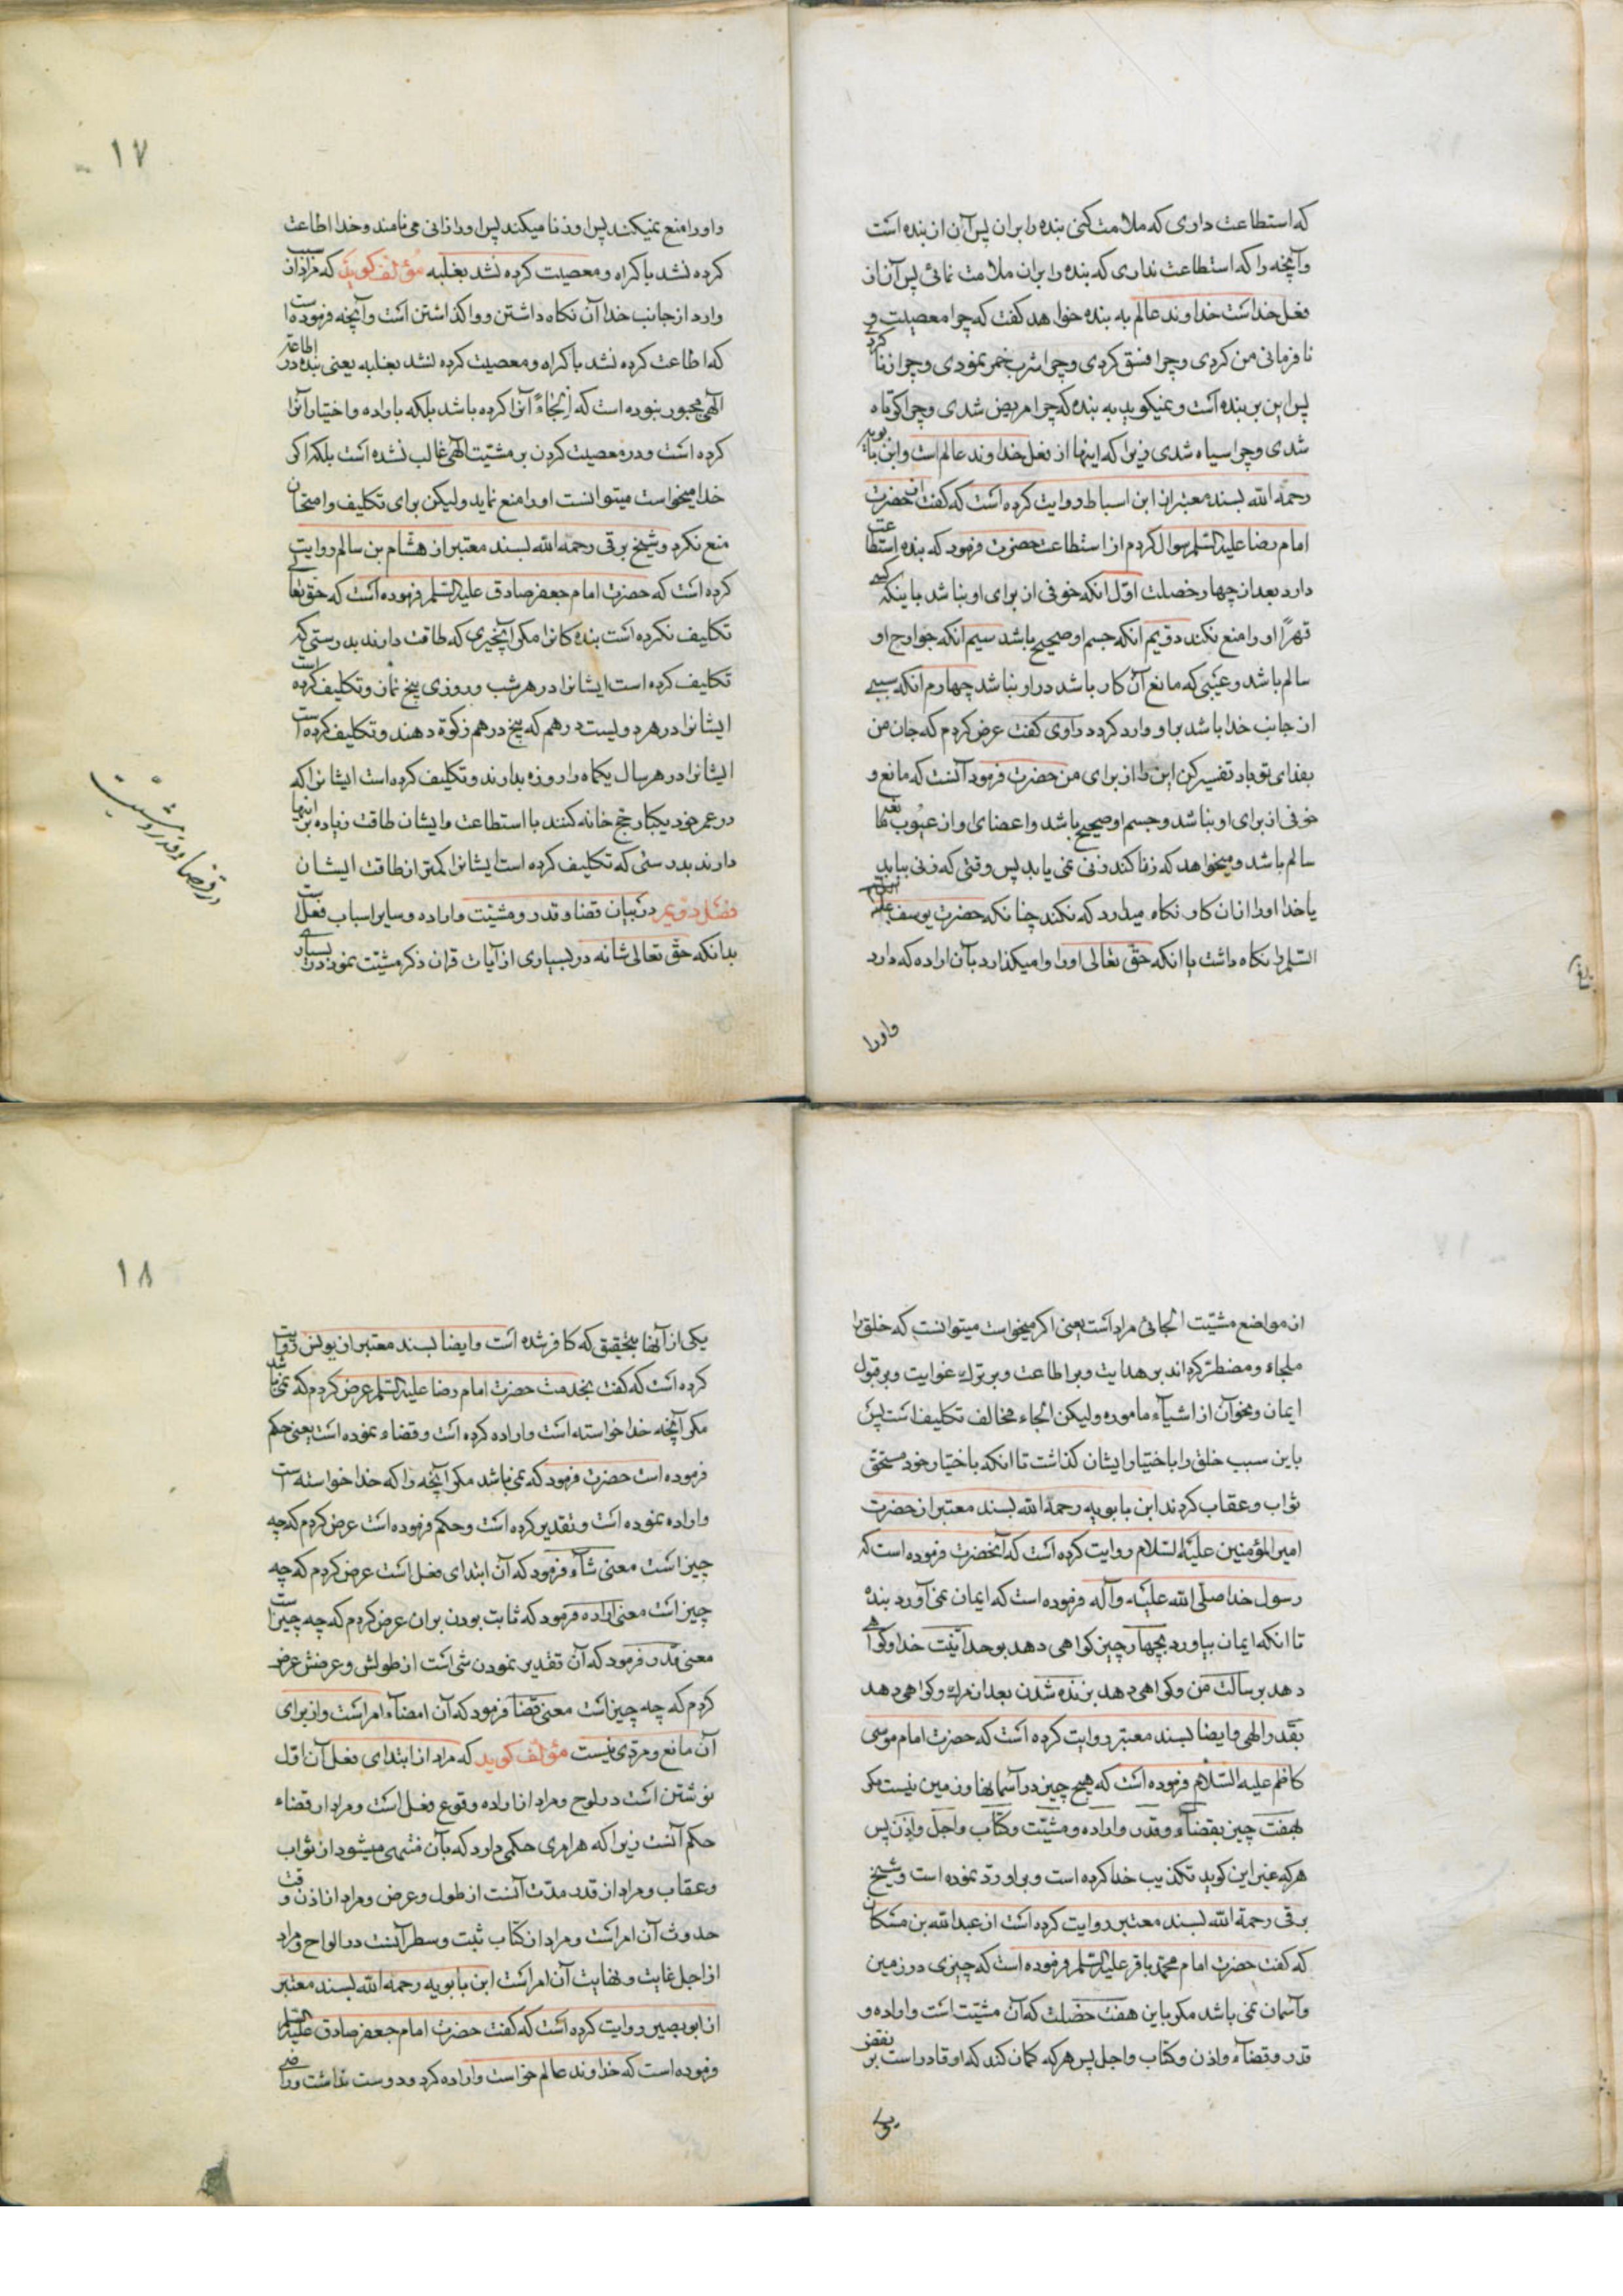 که استطاعت داری که ملامت کنی بنده را بران پس آن از بنده است
وآنچه را که استطاعت نداری که بنده را بران ملامت نمائی پس آن از
فعل خداست خداوند عالم به بنده خواهد گفت که چرا معصیت و
نافرمانی من کردی و چرا فسق کردی و چرا شرب خمر نمودی و چرا زنا کردی
پس این بر بنده است و نمیکوید به بنده که چرا مریض شدی و چرا کوتاه
شدی و چرا سیاه شدی زیرا که اینها از فعل خداوند عالم است وابن بابویه
رحمة الله بسند معتبر از ابن اسباط روایت کرده است که گفت از حضرت
امام رضا علیه السلم سوال کردم از استطاعت حضرت فرمود که بنده استطاعت
دارد بعد از چهار خصلت اول انکه خوفی از برای او نباشد باینکه کسی
قهرًا او را منع نکند دویم انکه جسم او صحیح باشد سیم انکه جوارح او
سالم باشد و عیبی که مانع آن کار باشد در او نباشد چهارم انکه سببی
از جانب خدا باشد باو وارد کردد راوی گفت عرض کردم که جان من
بفدای تو باد تفسیر کن این را از برای من حضرت فرمود آنست که مانع و
خوفی از برای او نباشد و جسم او صحیح باشد و اعضای او از عیوب بعیها
سالم باشد و میخواهد که زنا کند زنی نمی یابد پس وقتی که زنی بیابد
یا خدا او را از ان کار نکاه میدارد که نکند چنانکه حضرت یوسف علیه
السلم را نکاه داشت یا انکه حق تعالی او را وامیکذارد بآن اراده که دارد
واورا
۱۷
واورا منع نمیکند پس او زنا میکند پس او را زانی می نامند و خدا اطاعت
کرده نشد باکراه و معصیت کرده نشد بغلبه مؤلف کوید که مراد از سبب
وارد از جانب خدا آن نکاه داشتن و واکذاشتن است وآنچه فرموده است
که اطاعت کرده نشد باکراه و معصیت کرده نشد بغلبه یعنی بنده در اطاعت
آلهی مجبور نبوده است که اِلجاءً آنرا کرده باشد بلکه باراده و اختیار آنرا
کرده است و در معصیت کردن بر مشیّت الهی غالب نشده است بلکه اکر
خدا میخواست میتوانست او را منع نماید ولیکن برای تکلیف و امتحان
منع نکرد و شیخ برقی رحمة الله بسند معتبر از هشام بن سالم روایت
کرده است که حضرت امام جعفر صادق علیه السلم فرموده است که حق تعالی
تکلیف نکرده است بنده کانرا مکر آنچیزی که طاقت دارند بدرستی که
تکلیف کرده است ایشانرا در هر شب و روزی پنج نماز و تکلیف کرده است
ایشانرا در هر دویست درهم که پنج درهم زکوة دهند و تکلیف کرده است
ایشانرا در هر سال یکماه را روزه بدارند و تکلیف کرده است ایشانرا که
در عمر خود یکبار حج خانه کنند با استطاعت و ایشان طاقت زیاده بر اینها
دارند بدرستی که تکلیف کرده است ایشانرا کمتر از طاقت ایشان
فصل دویم در بیان قضا و قدر و مشیّت و اراده و سایر اسباب فعل است
بدانکه حق تعالی شانه در بسیاری از آیات قران ذکر مشیّت نموده در بسیاری
در قضا و قدر و مشیت
از مواضع مشیّت الجائی مراد است یعنی اکر میخواست میتوانست که خلق را
ملجاء و مضطر کرداند بر هدایت و بر اطاعت و بر ترک غوایت و بر قبول
ایمان و نحو آن از اشیآء ماموره ولیکن الجاء مخالف تکلیف است پس
باین سبب خلق را باختیار ایشان کذاشت تا انکه باختیار خود مستحق
ثواب و عقاب کردند ابن بابویه رحمة الله بسند معتبر از حضرت
امیر المؤمنین علیه السلام روایت کرده است که آنحضرت فرموده است که
رسول خدا صلّی الله علیه وآله فرموده است که ایمان نمی آورد بنده
تا انکه ایمان بیاورد بچهار چیز کواهی دهد بوحدانیّت خدا و کواهی
دهد برسالت من و کواهی دهد بزنده شدن بعد از مرک و کواهی دهد
بقدر الهی و ایضا بسند معتبر روایت کرده است که حضرت امام موسی
کاظم علیه السلام فرموده است که هیچ چیز در آسمانها و زمین نیست مکر
بهفت چیز بقضآء و قدر و اراده و مشیّت و کتاب و اجل و اذن پس
هر که غیر این کوید تکذیب خدا کرده است و بر او ردّ نموده است و شیخ
برقی رحمة الله بسند معتبر روایت کرده است از عبدالله بن مسکان
که کفت حضرت امام محمد باقر علیه السلم فرموده است که چیزی در زمین
وآسمان نمی باشد مکر باین هفت خصلت که آن مشیّت است و اراده و
قدر و قضآء و اذن و کتاب و اجل پس هر که کمان کند که او قادر است بر نقض
یکی
۱۸
یکی از آنها بتحقیق که کافر شده است و ایضا بسند معتبر از یونس روایت
کرده است که کفت بخدمت حضرت امام رضا علیه السلم عرض کردم که نمی باشد
مکر آنچه خدا خواسته است و اراده کرده است و قضاء نموده است یعنی حکم
فرموده است حضرت فرمود که نمی باشد مکر آنچه را که خدا خواسته است
و اراده نموده است و تقدیر کرده است و حکم فرموده است عرض کردم که چه
چیز است معنی شآء فرمود که آن ابتدای فعل است عرض کردم که چه
چیز است معنی اراده فرمود که ثابت بودن بر ان عرض کردم که چه چیز است
معنی قدر فرمود که آن تقدیر نمودن شی است از طولش و عرضش عرض
کردم که چه چیز است معنی قضا فرمود که آن امضآء امر است و از برای
آن مانع و مردّی نیست مؤلف کوید که مراد از ابتدای فعل آن اول
نوشتن است در لوح و مراد از اراده وقوع فعل است و مراد از قضاء
حکم آنست زیرا که هر امری حکمی دارد که بآن منتهی میشود از ثواب
و عقاب و مراد از قدر مدّت آنست از طول و عرض و مراد از اذن وقت
حدوث آن امر است و مراد از کتاب ثبت و سطر آنست در الواح و مراد
از اجل غایت و نهایت آن امر است ابن بابویه رحمة الله بسند معتبر
از ابوبصیر روایت کرده است که کفت حضرت امام جعفر صادق علیه السلم
فرموده است که خداوند عالم خواست و اراده کرد و دوست نداشت و راضی